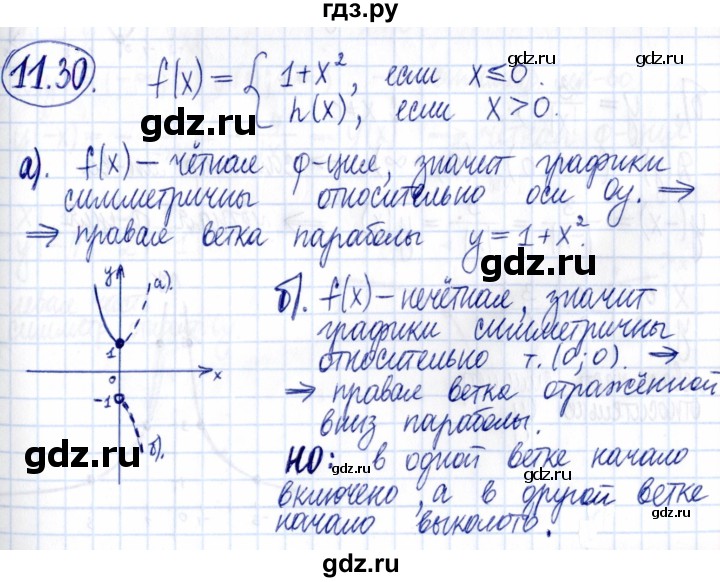 гдз.ру
11.30. f(x) = { 1+x², если x≤0.
h(x), если x>0.
а). f(x) – чётная ф-ция, значит графики
симметричны относительно оси Oy. ⇒
⇒ правая ветка параболы y=1+x².
y
а).
1
0
x
-1
б).
б). f(x) – нечётная, значит
графики симметричны
относительно т. (0;0). ⇒
⇒ правая ветка отражённой
вниз параболы.
НО: в одной ветке начало
включено, а в другой ветке
начало выколото.
gdz.ru
gdz.ru
gdz.ru
gdz.ru
gdz.ru
gdz.ru
gdz.ru
gdz.ru
gdz.ru
gdz.ru
gdz.ru
gdz.ru
gdz.ru
gdz.ru
гдз.ру